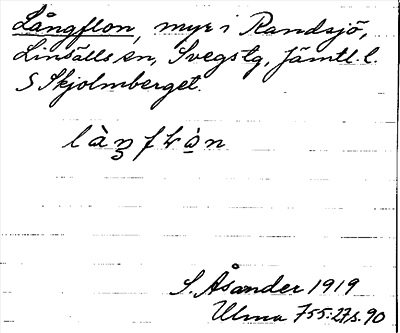 Långflon, myr i Randsjö,
Linsälls sn, Svegs tg, Jämtl. l.
S Skjolmberget.
S. Åsander 1919
Ulma 755:27, s. 90